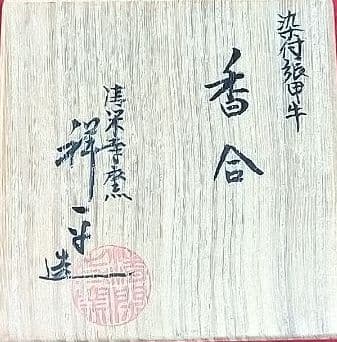 染付張甲牛
香合
清閑寺窯
祥平造